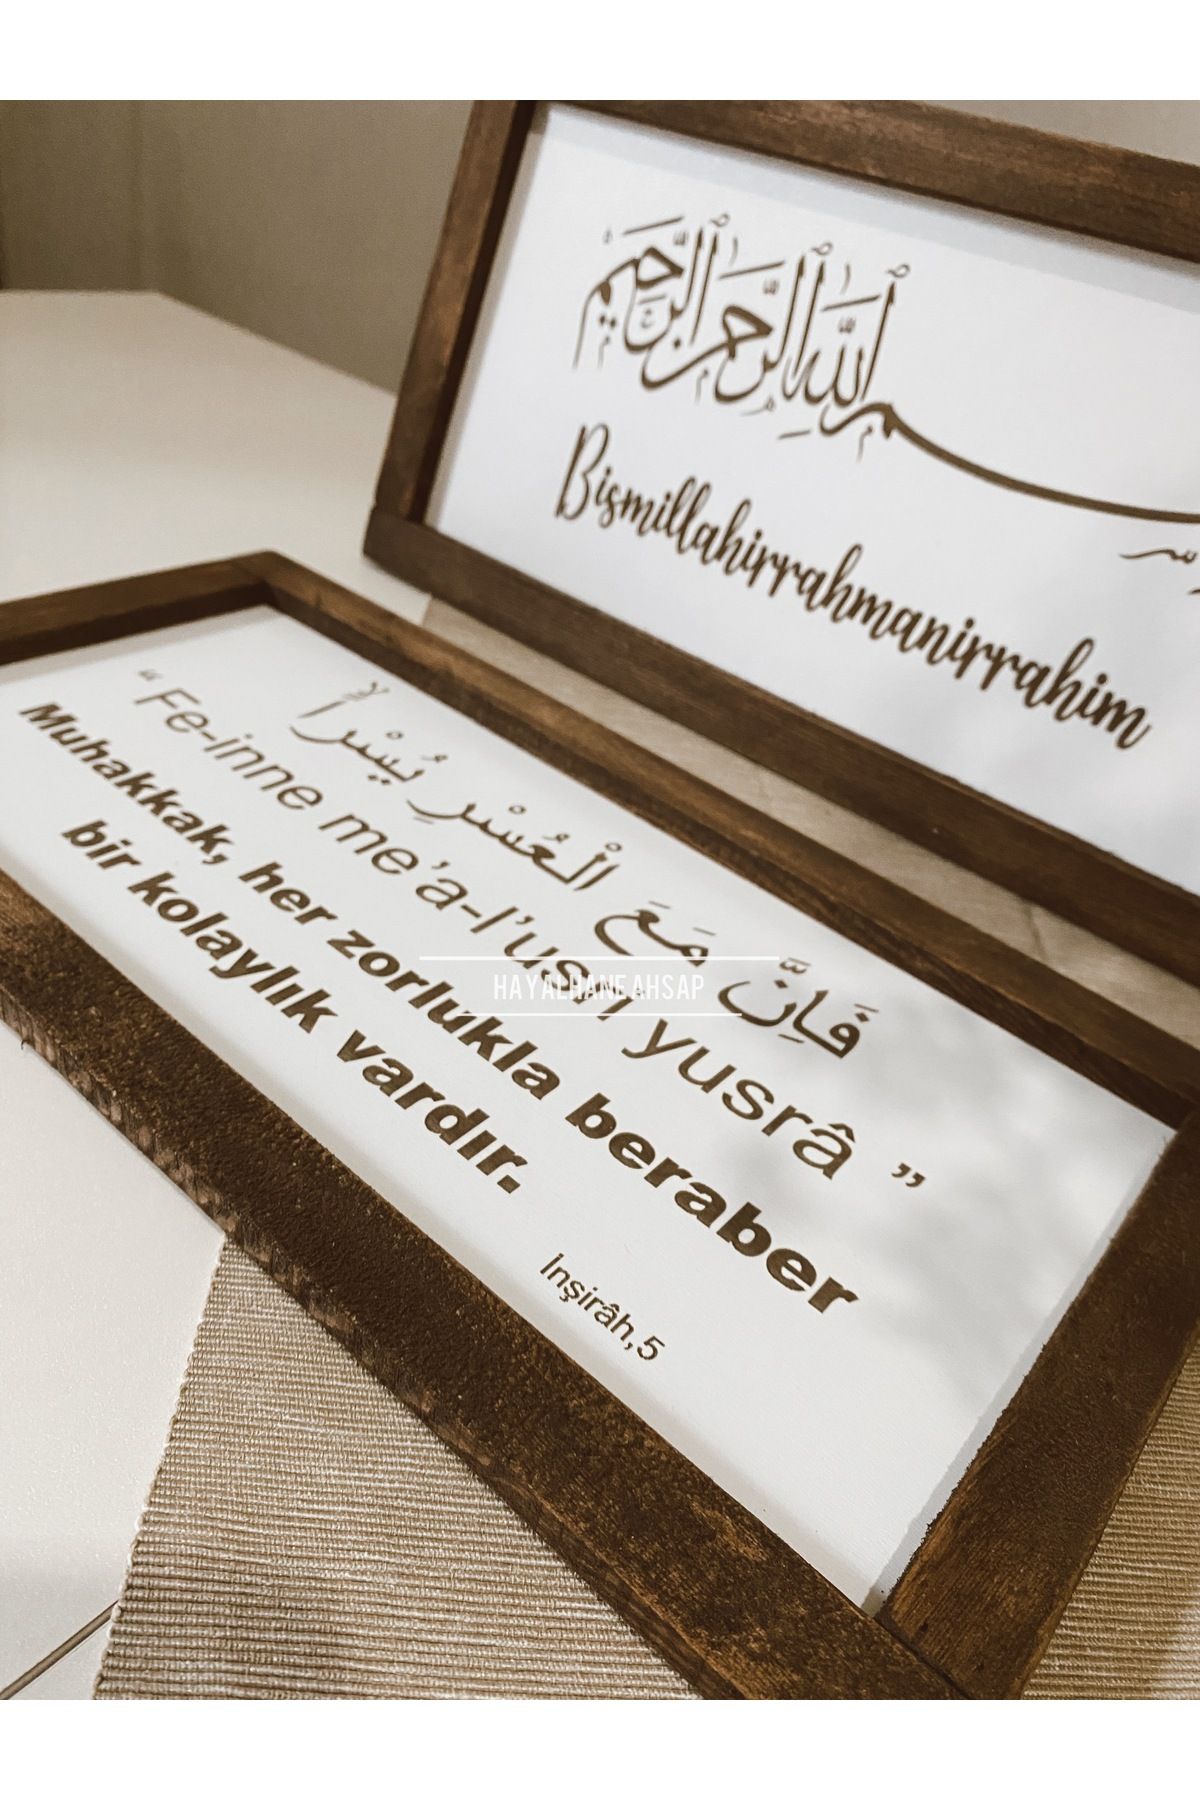 بسم ٱللَّهِ ٱلرَّحْمَٰنِ ٱلرَّحِيمِ
Bismillahirrahmanirrahim
فَاِنَّ مَعَ الْعُسْرِ يُسْراًۙ
“Fe-inne me’a-l’usri yusrâ”
Muhakkak, her zorlukla beraber
bir kolaylık vardır.
İnşirâh,5
HAYALHANEAHSAP